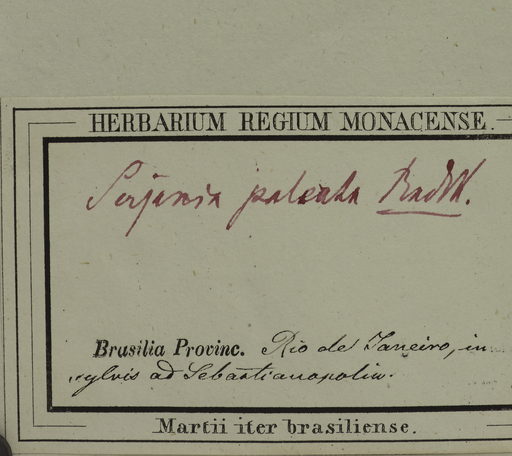 HERBARIUM REGIUM MONACENSE.
Serjania paleata Radlk.
Brasilia Provinc. Rio de Janeiro, in
sylvis ad Sebastianopolin.
Martii iter brasiliense.